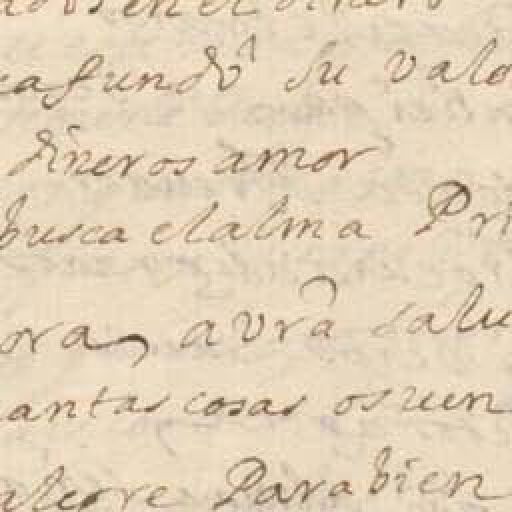 en el dinero
fundó su valo
dineros amor
busca el alma Pri
ora, avrá salu
antas cosas os uen
alegre Parabien